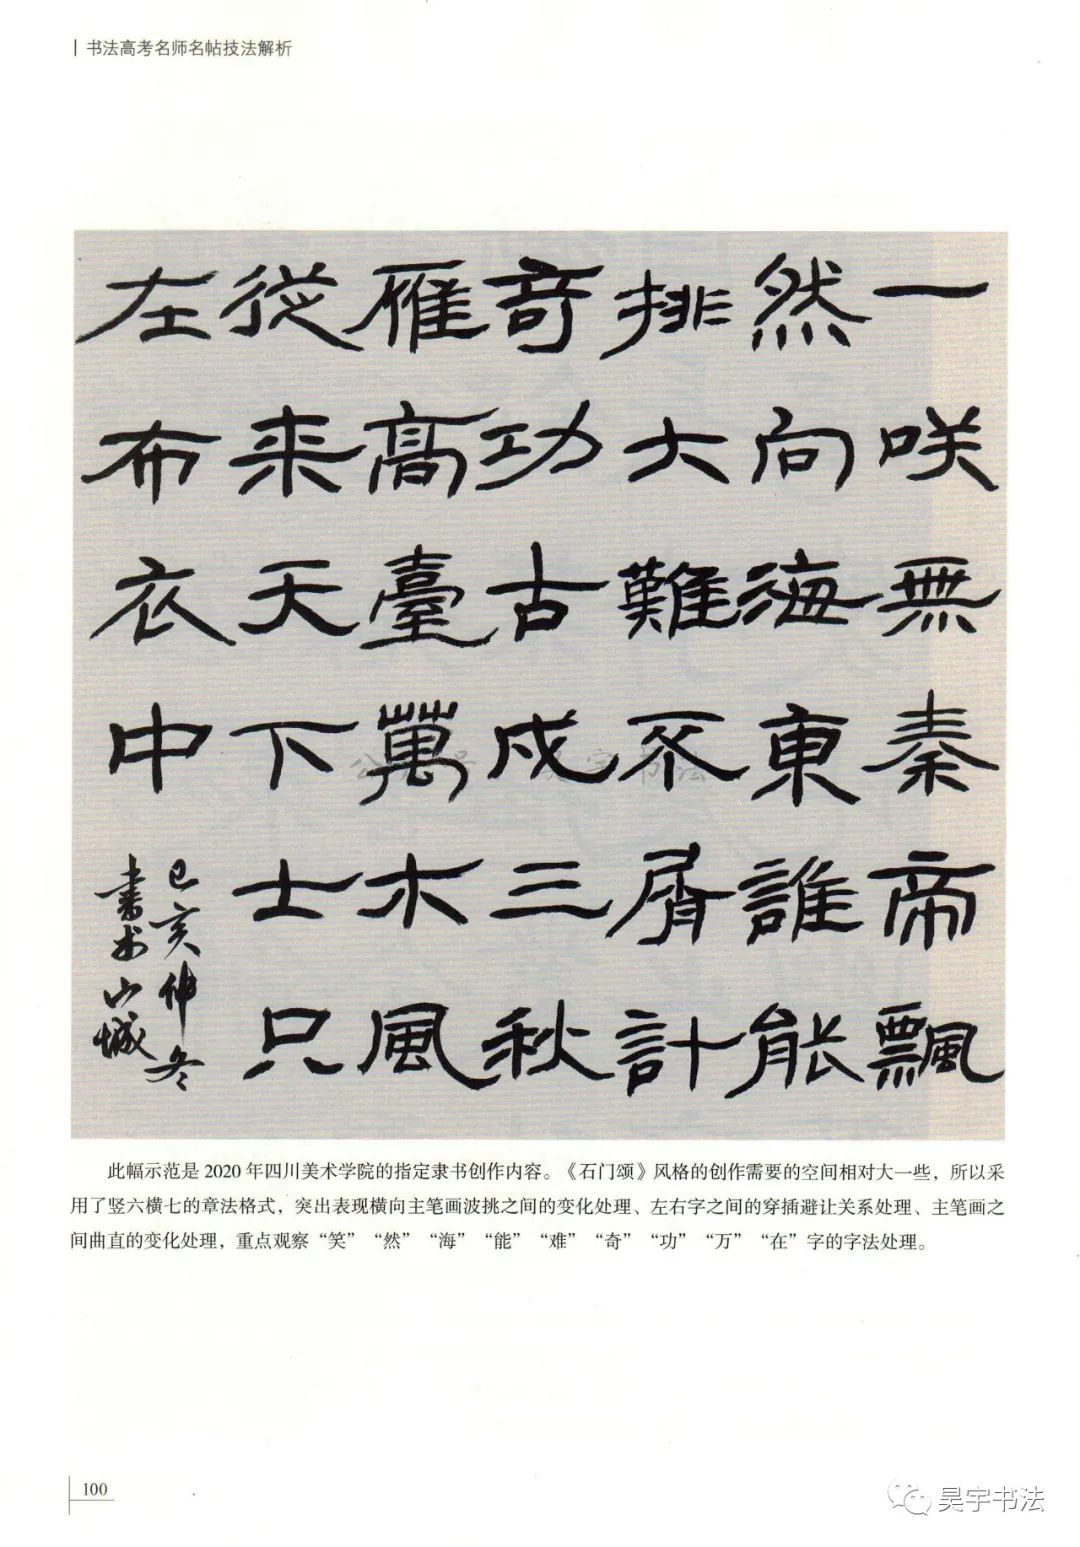 书法高考名师名帖技法解析
一咲無秦帝飄
然向海東誰能
排大難不屑計
奇功古戍三秋
雁高臺萬木風
從来天下士只
左布衣中
己亥仲冬
書於山城
公众号 昊宇书法
此幅示范是 2020 年四川美术学院的指定隶书创作内容。《石门颂》风格的创作需要的空间相对大一些，所以采
用了竖六横七的章法格式，突出表现横向主笔画波挑之间的变化处理、左右字之间的穿插避让关系处理、主笔画之
间曲直的变化处理，重点观察“笑”“然”“海”“能”“难”“奇”“功”“万”“在”字的字法处理。
100
昊宇书法